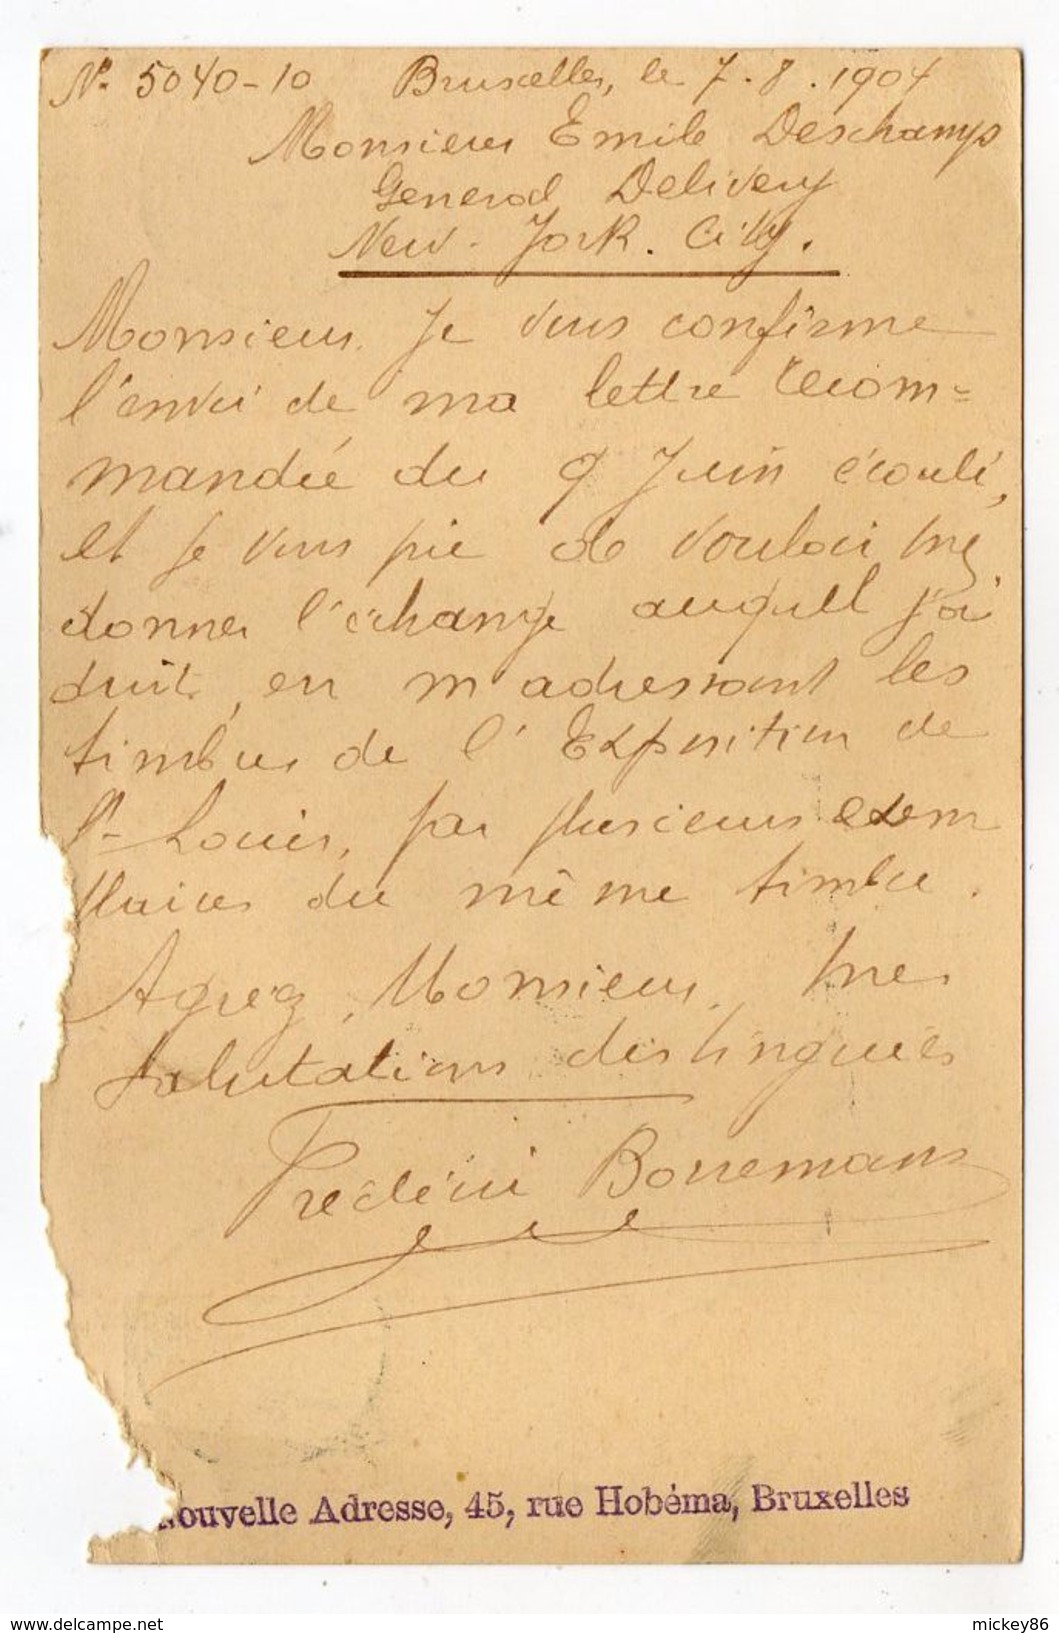 No 5040-10 Bruxelles, le 7.8.1904
Monsieur Emile Deschamps
General Delivery
New-York. City.
Monsieur. Je vous confirme
l'envoi de ma lettre recom=
mandée du 9 Juin écoulé,
et je vous prie de vouloir me
donner l'échange auquel j'ai
droit, en m'adressant les
timbres de l'Exposition de
St-Louis, par plusieurs exem
plaires du même timbre.
Agréez, Monsieur, mes
salutations distinguées
Frédéric Bonnemans
ouvelle Adresse, 45, rue Hobéma, Bruxelles
https://www.delcampe.net
mickey86